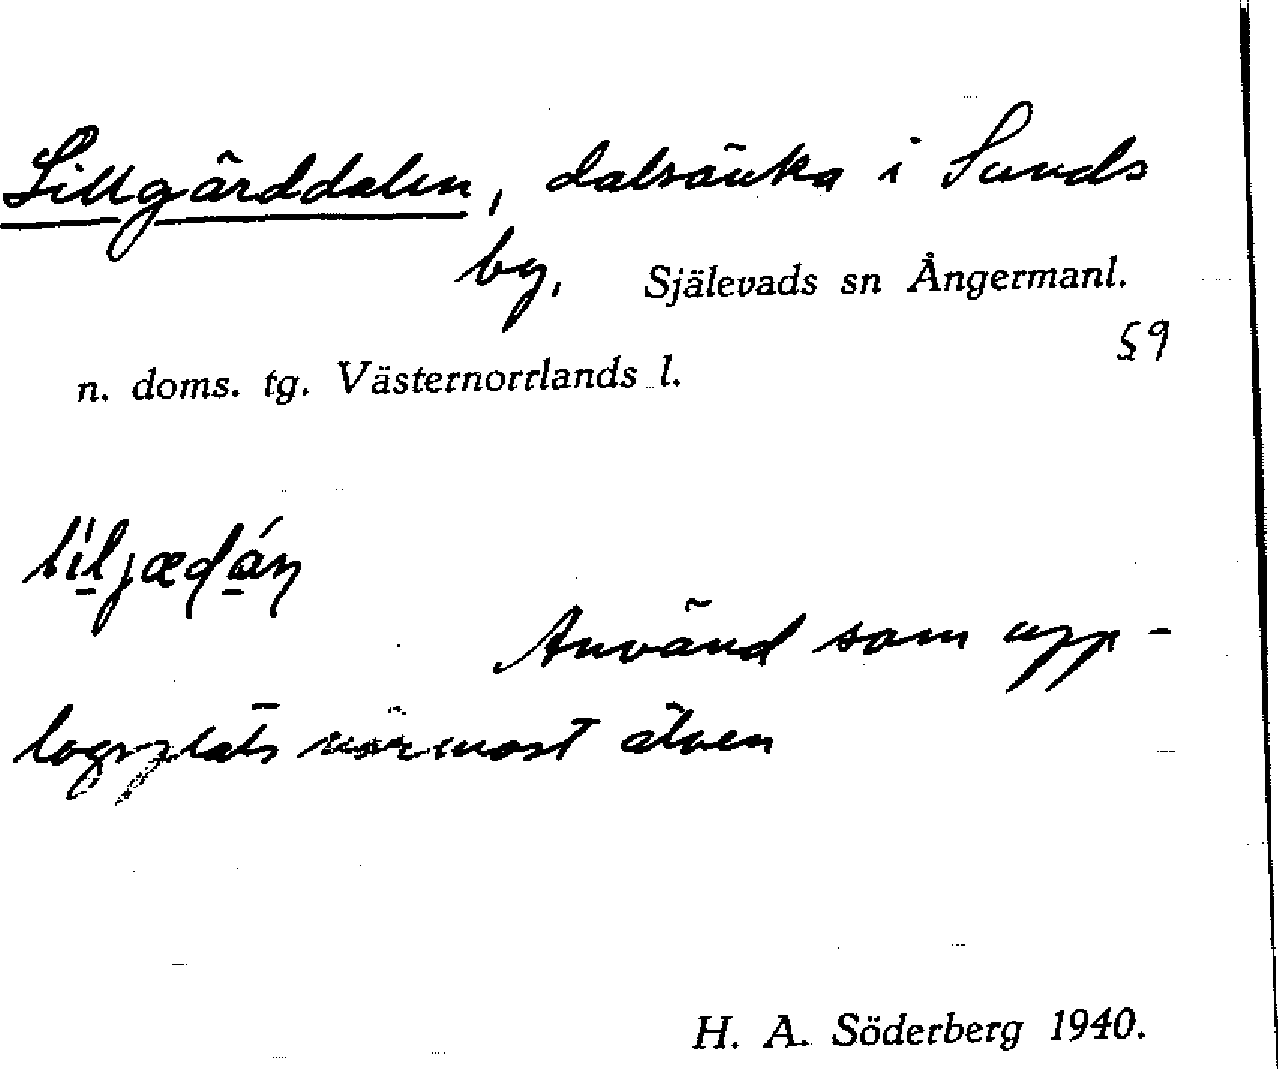 Lillgärddalen, dalsänka i Sunds
by, Själevads sn Ångermanl.
59
n. doms. tg. Västernorrlands l.
Använd som upp-
logsplats närmast älven
H. A. Söderberg 1940.